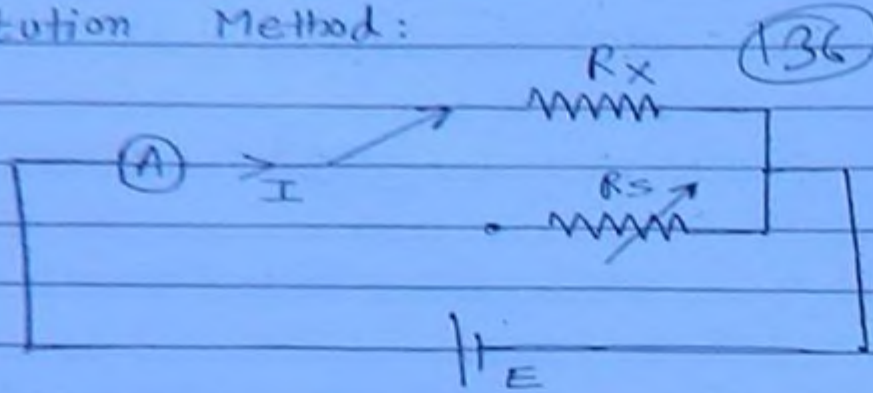 tution Method:
136
Rx
A
I
Rs
E